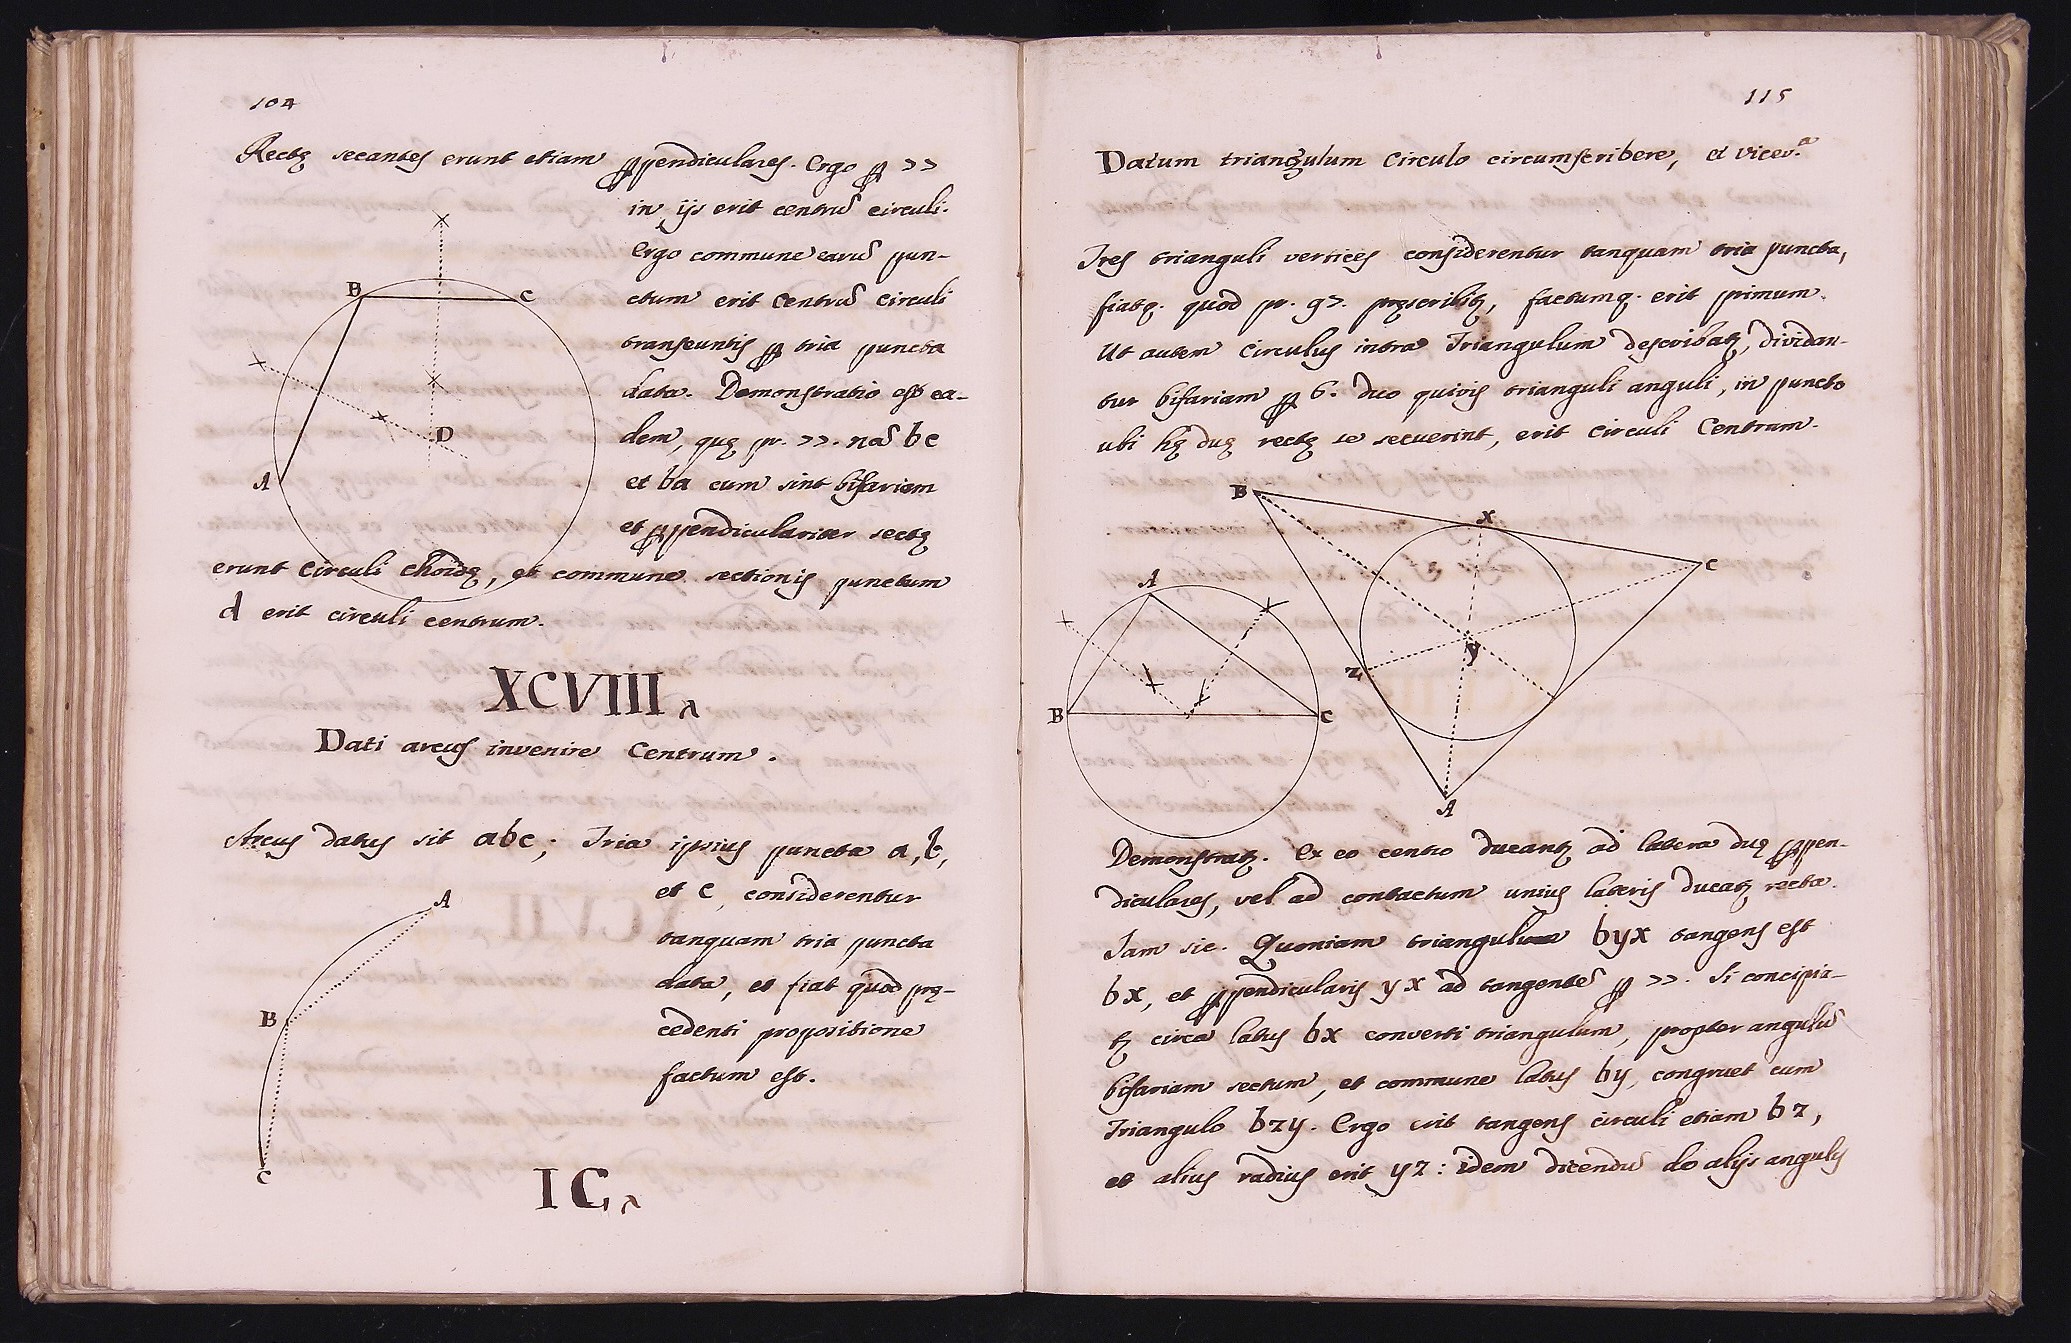 104
Rectę secantes erunt etiam ꝑpendiculares. Ergo ꝑ 77
in ijs erit centrũ circuli.
Ergo commune earũ pun-
ctum erit Centrũ circuli
transeuntis ꝑ tria puncta
data. Demonstratio est ea-
dem, quę pr. 77. nã bc
et ba cum sint bifariam
et ꝑpendiculariter sectę
erunt circuli chordę, et commune sectionis punctum
d erit circuli centrum.
B
C
D
A
XCVIII
Dati arcus invenire Centrum.
Arcus datus sit abc; Tria ipsius puncta a, b,
et c considerentur
tanquam tria puncta
data, et fiat quod prę-
cedenti propositione
factum est.
A
B
C
IC
115
Datum triangulum Circulo circumscribere, et vicev.ª
Tres trianguli vertices considerentur tanquam tria puncta,
fiatq. quod pr. 97. pręscribitꝫ, factumq. erit primum.
Ut autem Circulus intra Triangulum describatꝫ, dividan-
tur bifariam ꝑ 6. duo quivis trianguli anguli, in puncto
ubi hę duę rectę se secuerint, erit circuli Centrum.
B
X
C
A
Z
y
B
C
A
Demonstratꝫ. Ex eo centro ducantꝫ ad latera duę ꝑpen-
diculares, vel ad contactum unius lateris ducatꝫ recta.
Iam sic. Quoniam trianguli byx tangens est
bx, et ꝑpendicularis yx ad tangentẽ ꝑ 77. Si concipia-
tꝫ circa latus bx converti triangulum, propter angulũ
bifariam sectum, et commune latus by, congruet cum
Triangulo bzy. Ergo erit tangens circuli etiam bz,
et alius radius erit yz: idem dicendũ de alijs angulis